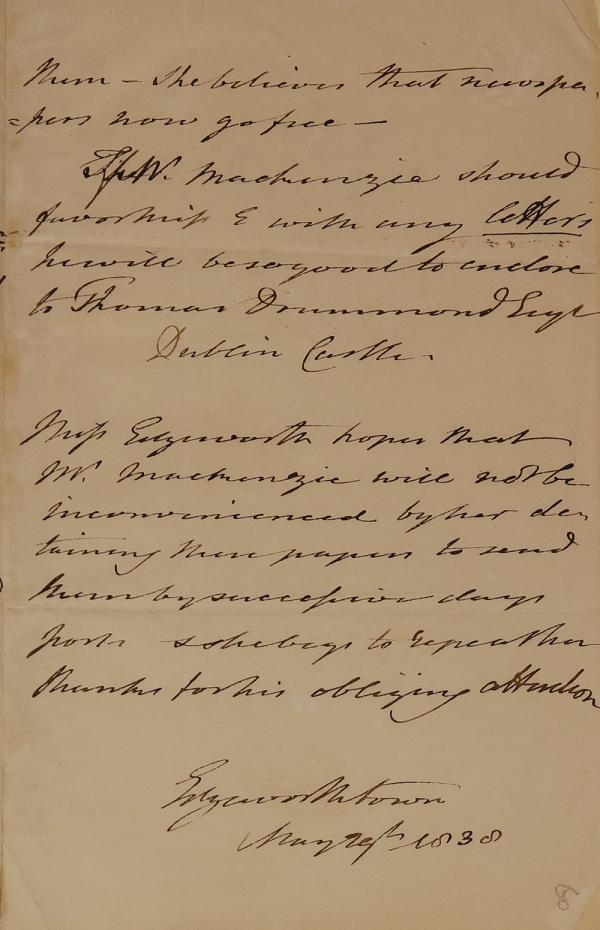 them – she believes that newspa-
=pers now go free –
If Mr. Mackenzie should
favor Miss E with any letters
he will be so good to enclose
to Thomas Drummond Esqr
Dublin Castle.
Miss Edgeworth hopes that
Mr. Mackenzie will not be
inconvenienced by her de-
taining these papers to send
them by successive days
posts & she begs to repeat her
thanks for his obliging attention
Edgeworthstown
May 29th 1838
8